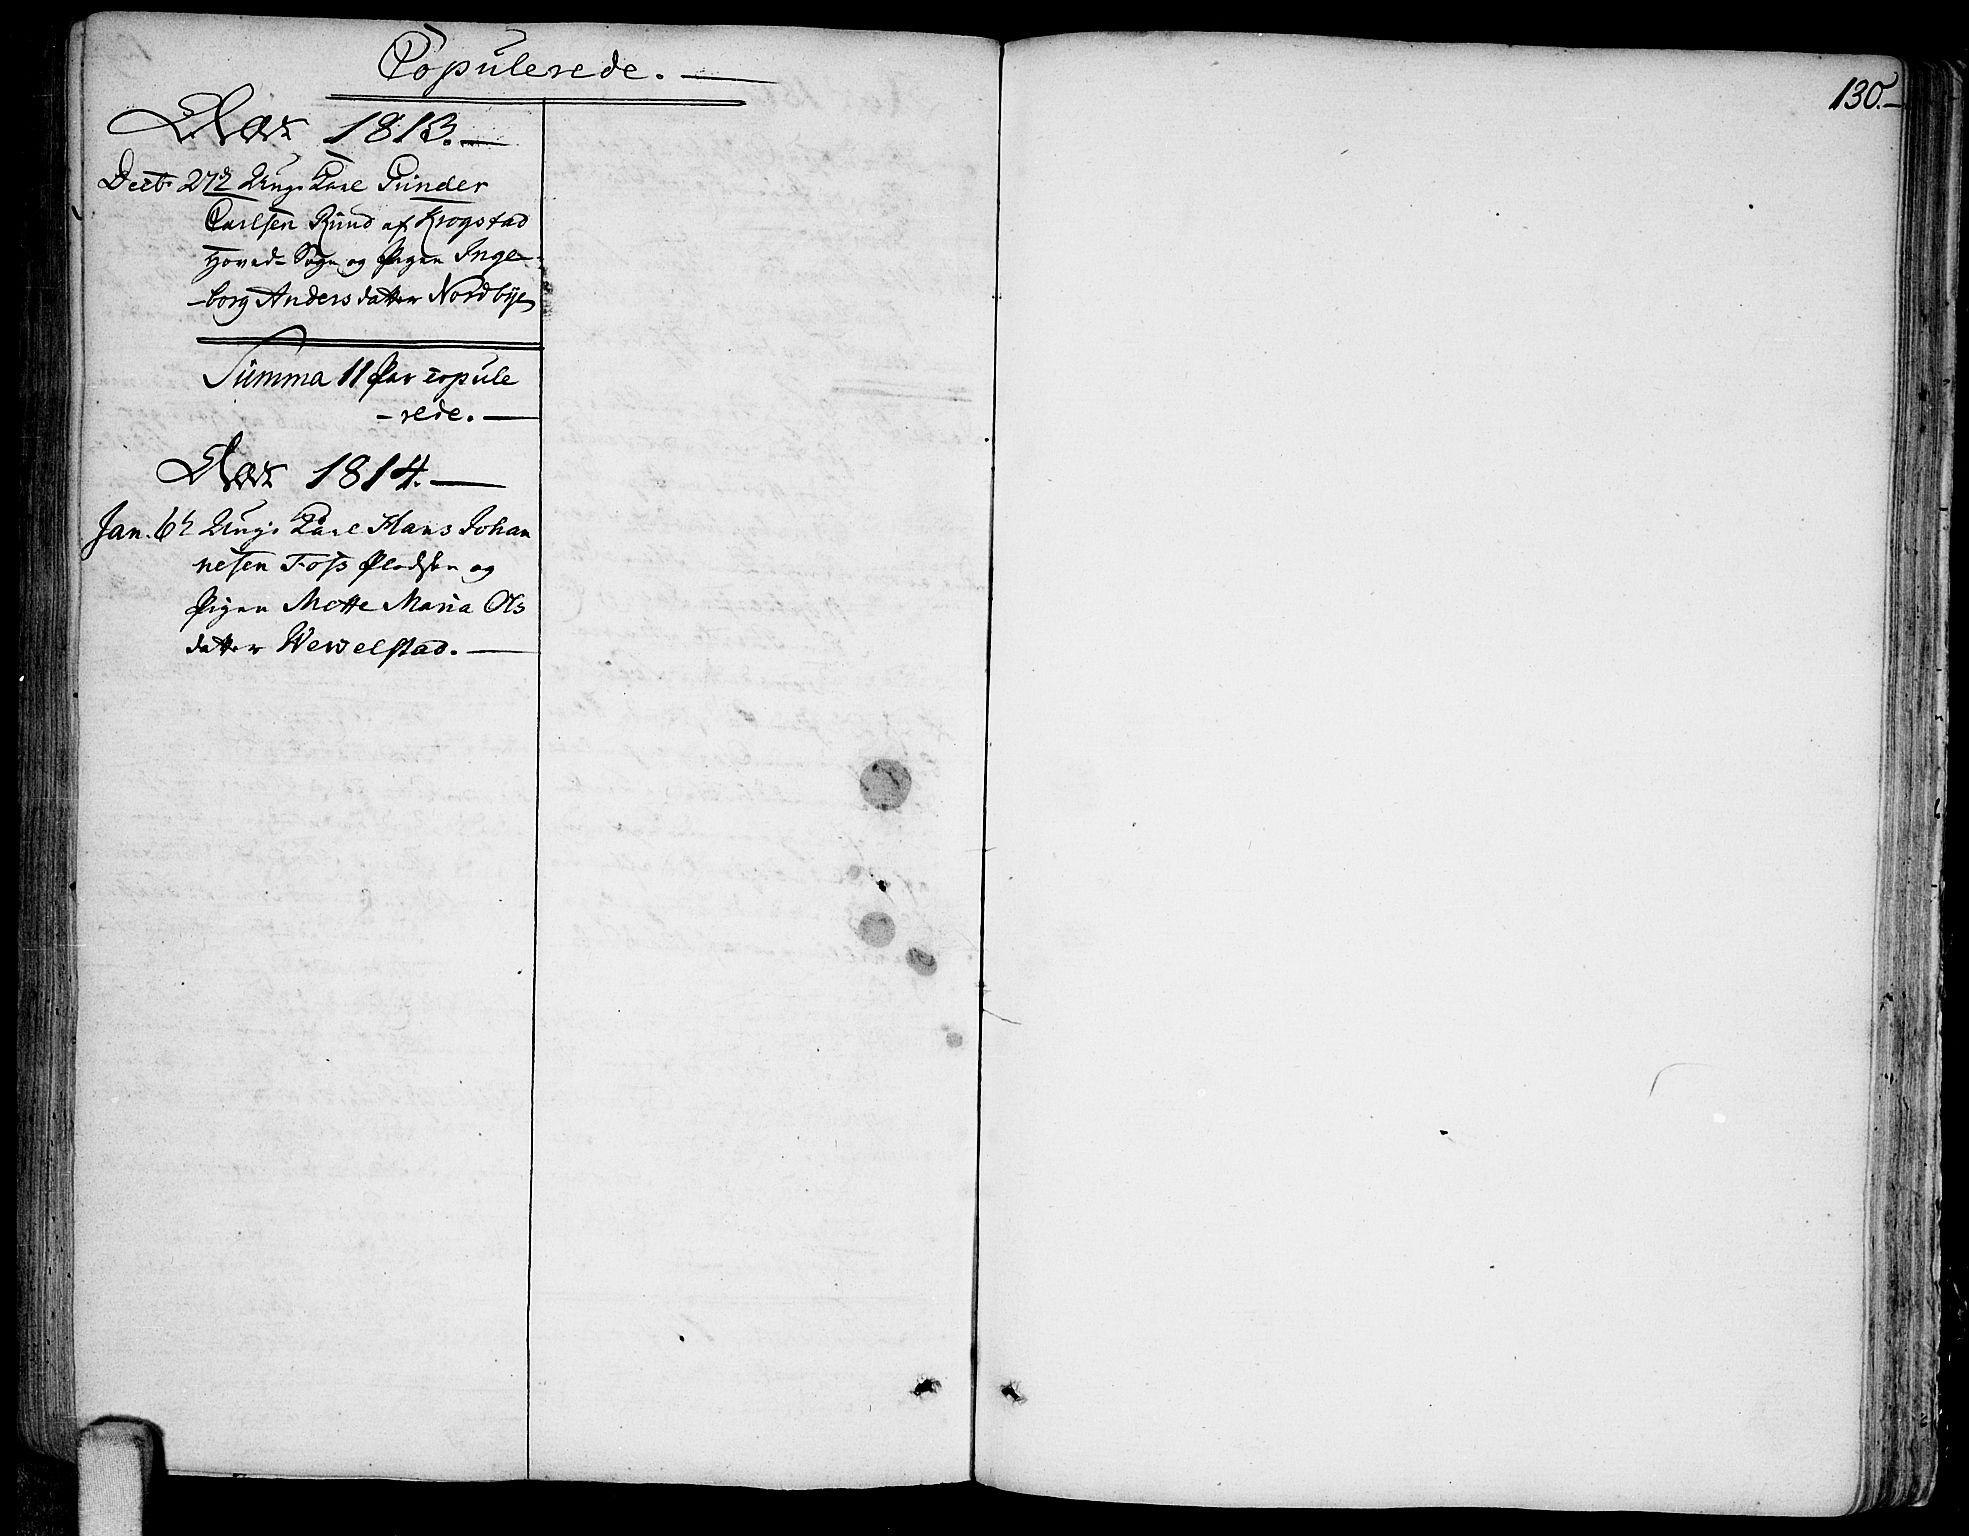 Copulerede.
Aar 1813.
Decb. 27de Ungk. Karl Gunder
Carlsen Rund af Krogstad
Hoved-Sogn og Pigen Inge-
-borg Andersdatter Nordbÿe
Summa 11 Par copule
-rede.
Aar 1814.
Jan. 6t Ungk. Karl Hans Johan
nesen Foss Pladsen og
Pigen Mette Maria Ols
datter Wewelstad.
130.